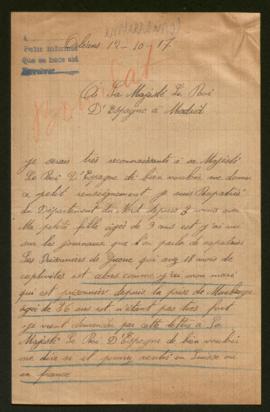 Orléans 14-10-17
Pedir informes
Que se hace así
A Sa Majesté Le Roi
D'Espagne à Madrid
je serais très reconnaissante à sa Majesté
Le Roi D'Espagne de bien vouloir me donner
ce petit renseignement je suis Rapatriée
du Département du Nord depuis 3 mois avec
Ma petite fille âgée de 3 ans et j'ai vue
sur les journaux que l'on parle de rapatrier
Les Prisonniers de Guerre qui ont 18 mois de
captivités est alors comme j'ai mon mari
qui est prisonnier depuis la prise de Maubeuge
agé de 36 ans est n'étant pas très fort
je vient demander par cette lettre à Sa
Majesté Le Roi D'Espagne de bien vouloir
me dire si il pourrai rentré en Suisse ou
en france